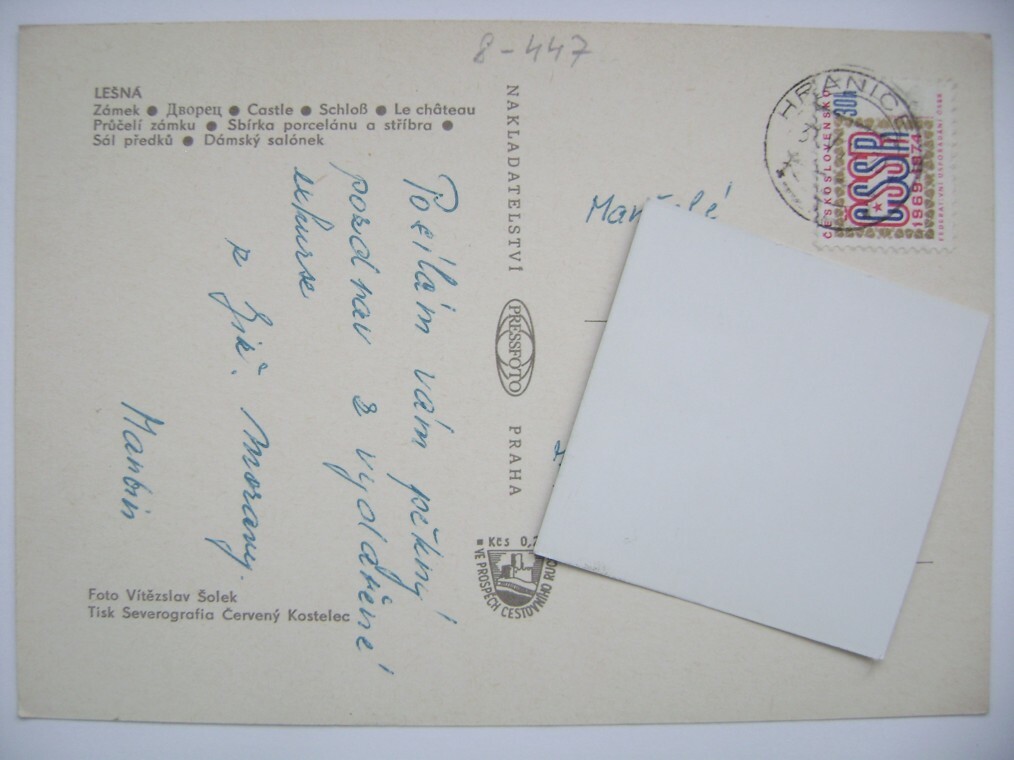 8-447
LEŠNÁ
Zámek ● Дворец ● Castle ● Schloß ● Le château
Průčelí zámku ● Sbírka porcelánu a stříbra ●
Sál předků ● Dámský salónek
Posílám vám pěkný
pozdrav z vydařené
exkurse
z Již. Moravy.
Foto Vítězslav Šolek
Tisk Severografia Červený Kostelec
NAKLADATELSTVÍ PRESSFOTO PRAHA
Kčs 0,
VE PROSPĚCH CESTOVNÍHO RUC
HRANICE
ČESKOSLOVENSKO
30h
ČSSR
1969-1974
FEDERATIVNÍ USPOŘÁDÁNÍ ČSSR